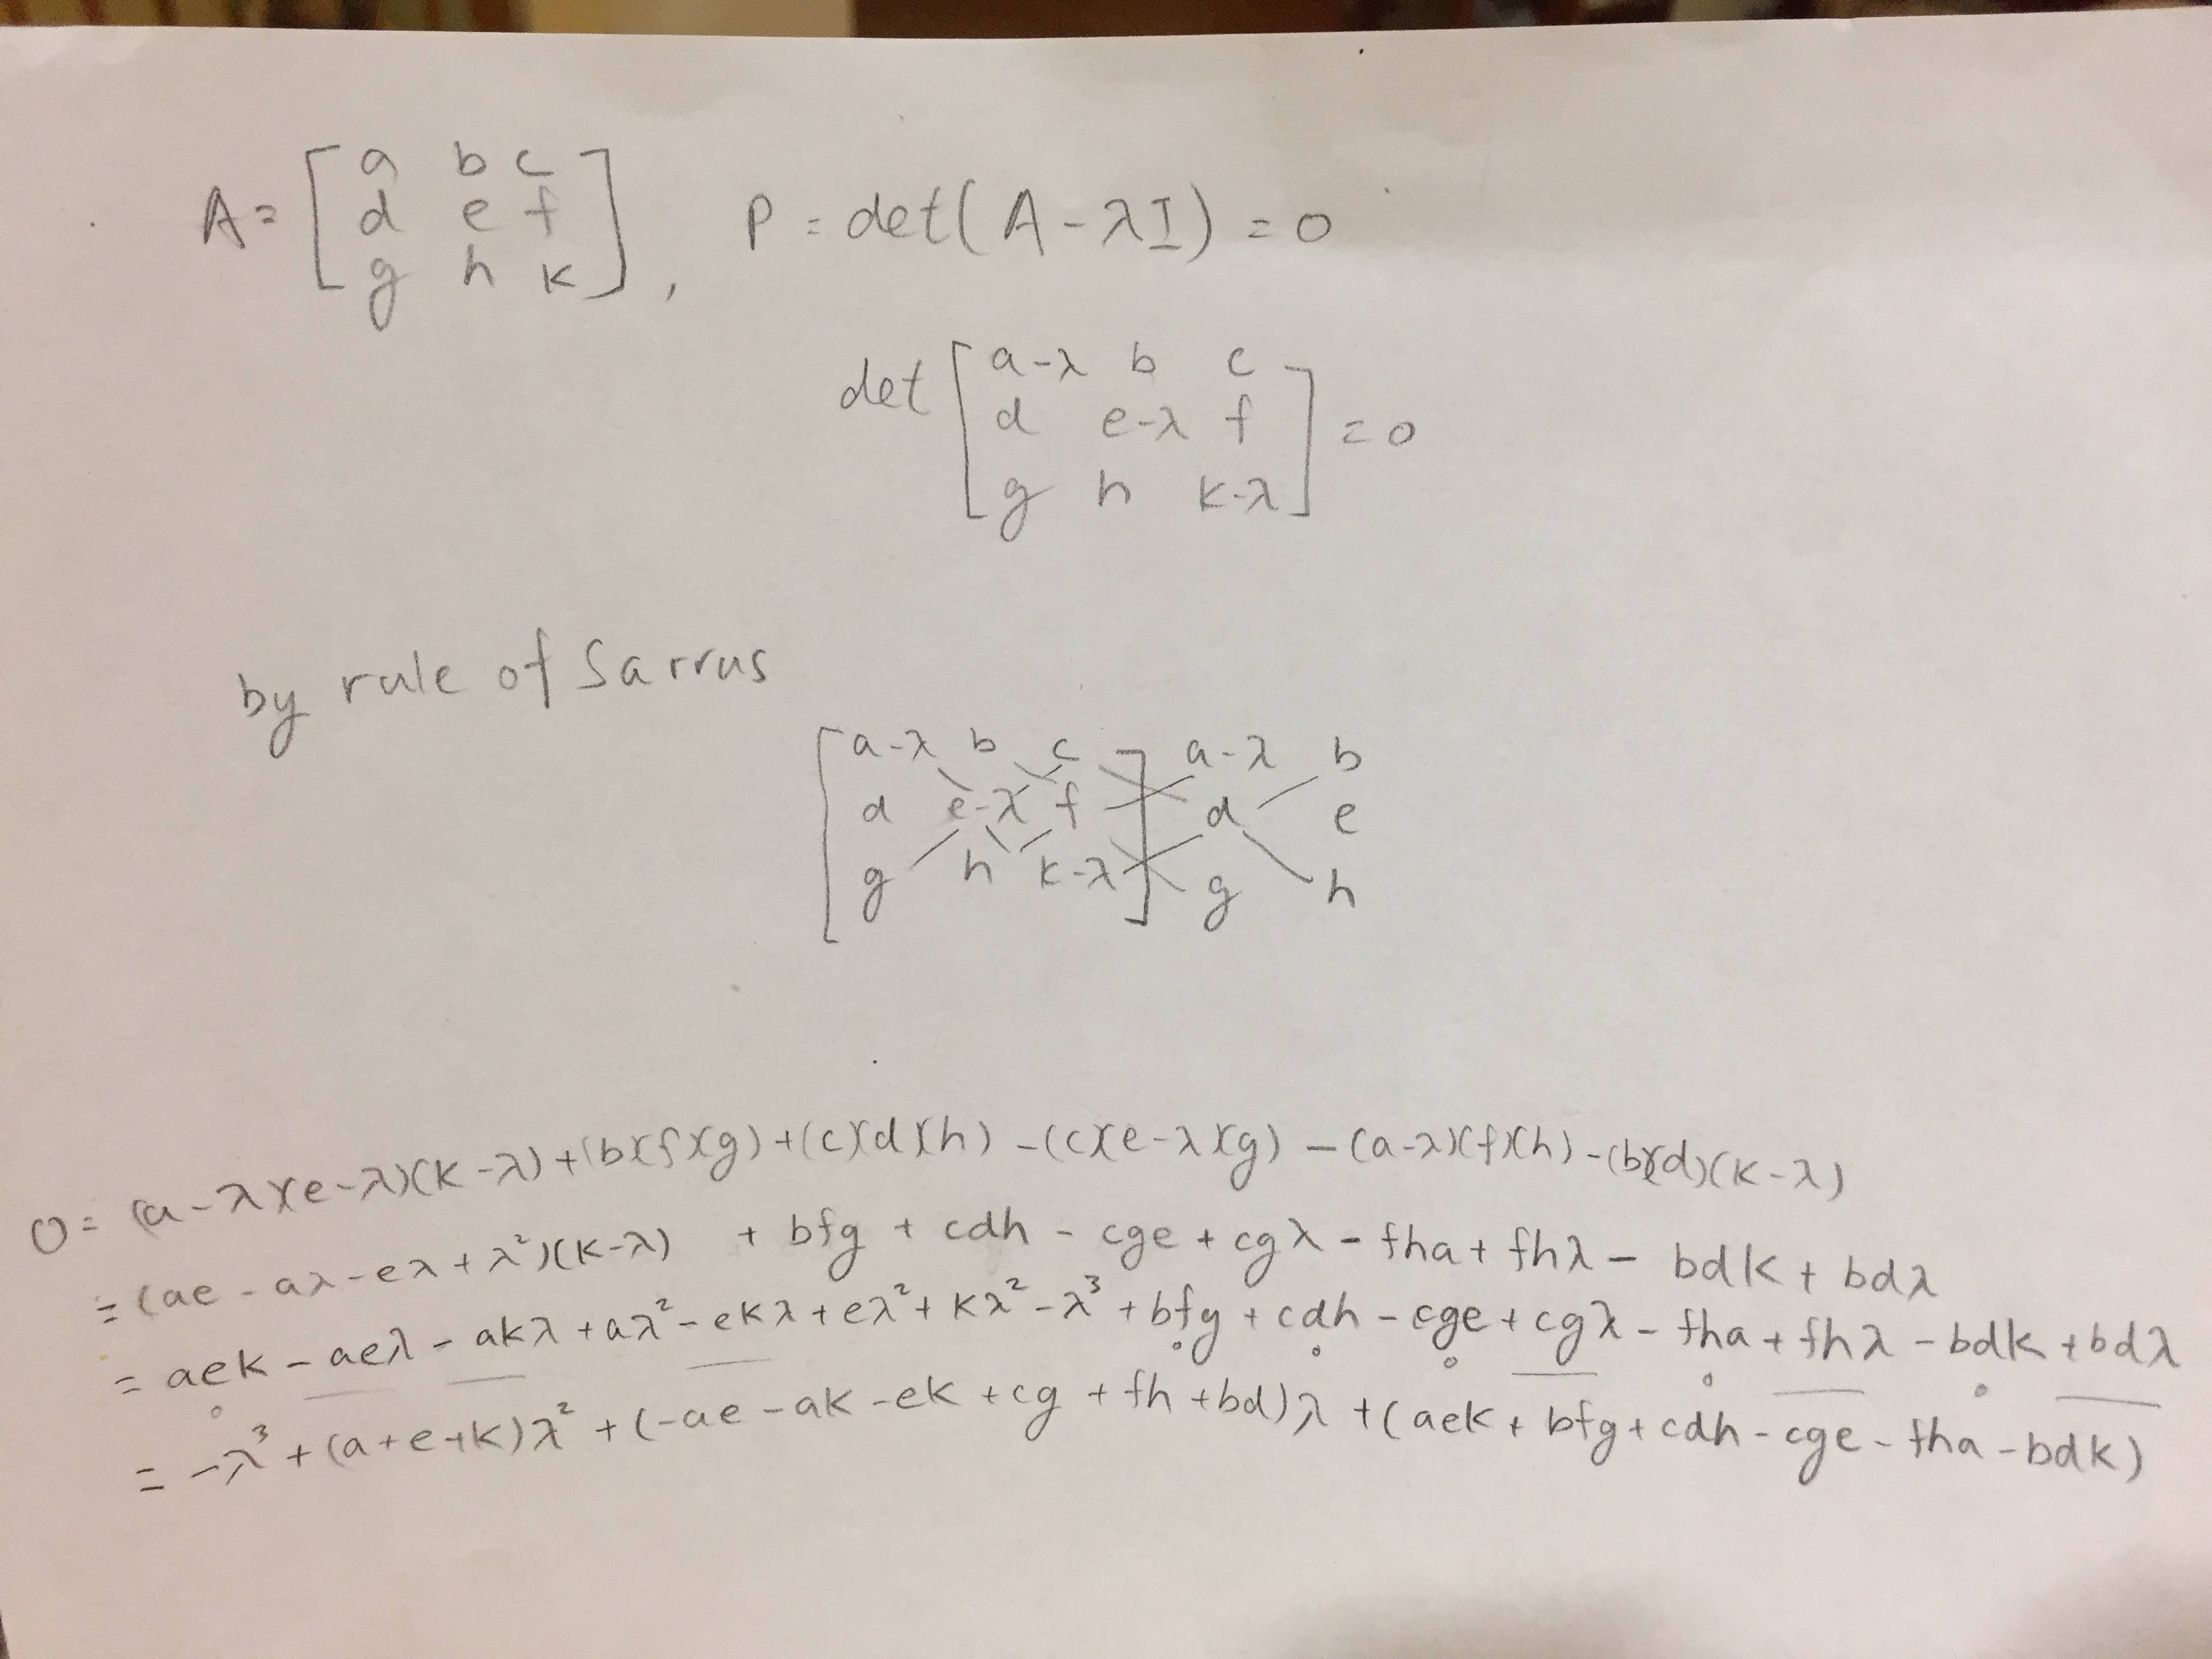 A = [ a b c
d e f
g h k ] , P = det(A - λI) = 0
det [ a-λ b c
d e-λ f
g h k-λ ] = 0
by rule of Sarrus
[ a-λ b c ] a-λ b
d e-λ f d e
g h k-λ g h
0 = (a-λ)(e-λ)(k-λ) + (b)(f)(g) + (c)(d)(h) - (c)(e-λ)(g) - (a-λ)(f)(h) - (b)(d)(k-λ)
= (ae - aλ - eλ + λ²)(k-λ) + bfg + cdh - cge + cgλ - fha + fhλ - bdk + bdλ
= aek - aeλ - akλ + aλ² - ekλ + eλ² + kλ² - λ³ + bfg + cdh - cge + cgλ - fha + fhλ - bdk + bdλ
= -λ³ + (a+e+k)λ² + (-ae - ak - ek + cg + fh + bd)λ + (aek + bfg + cdh - cge - fha - bdk)